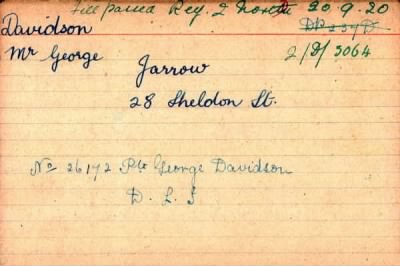 passed Reg. 2 North 20.9.20
Davidson
Mr George
2/D/3064
Jarrow
28 Sheldon St.
No 26172 Pte George Davidson
D. L. I